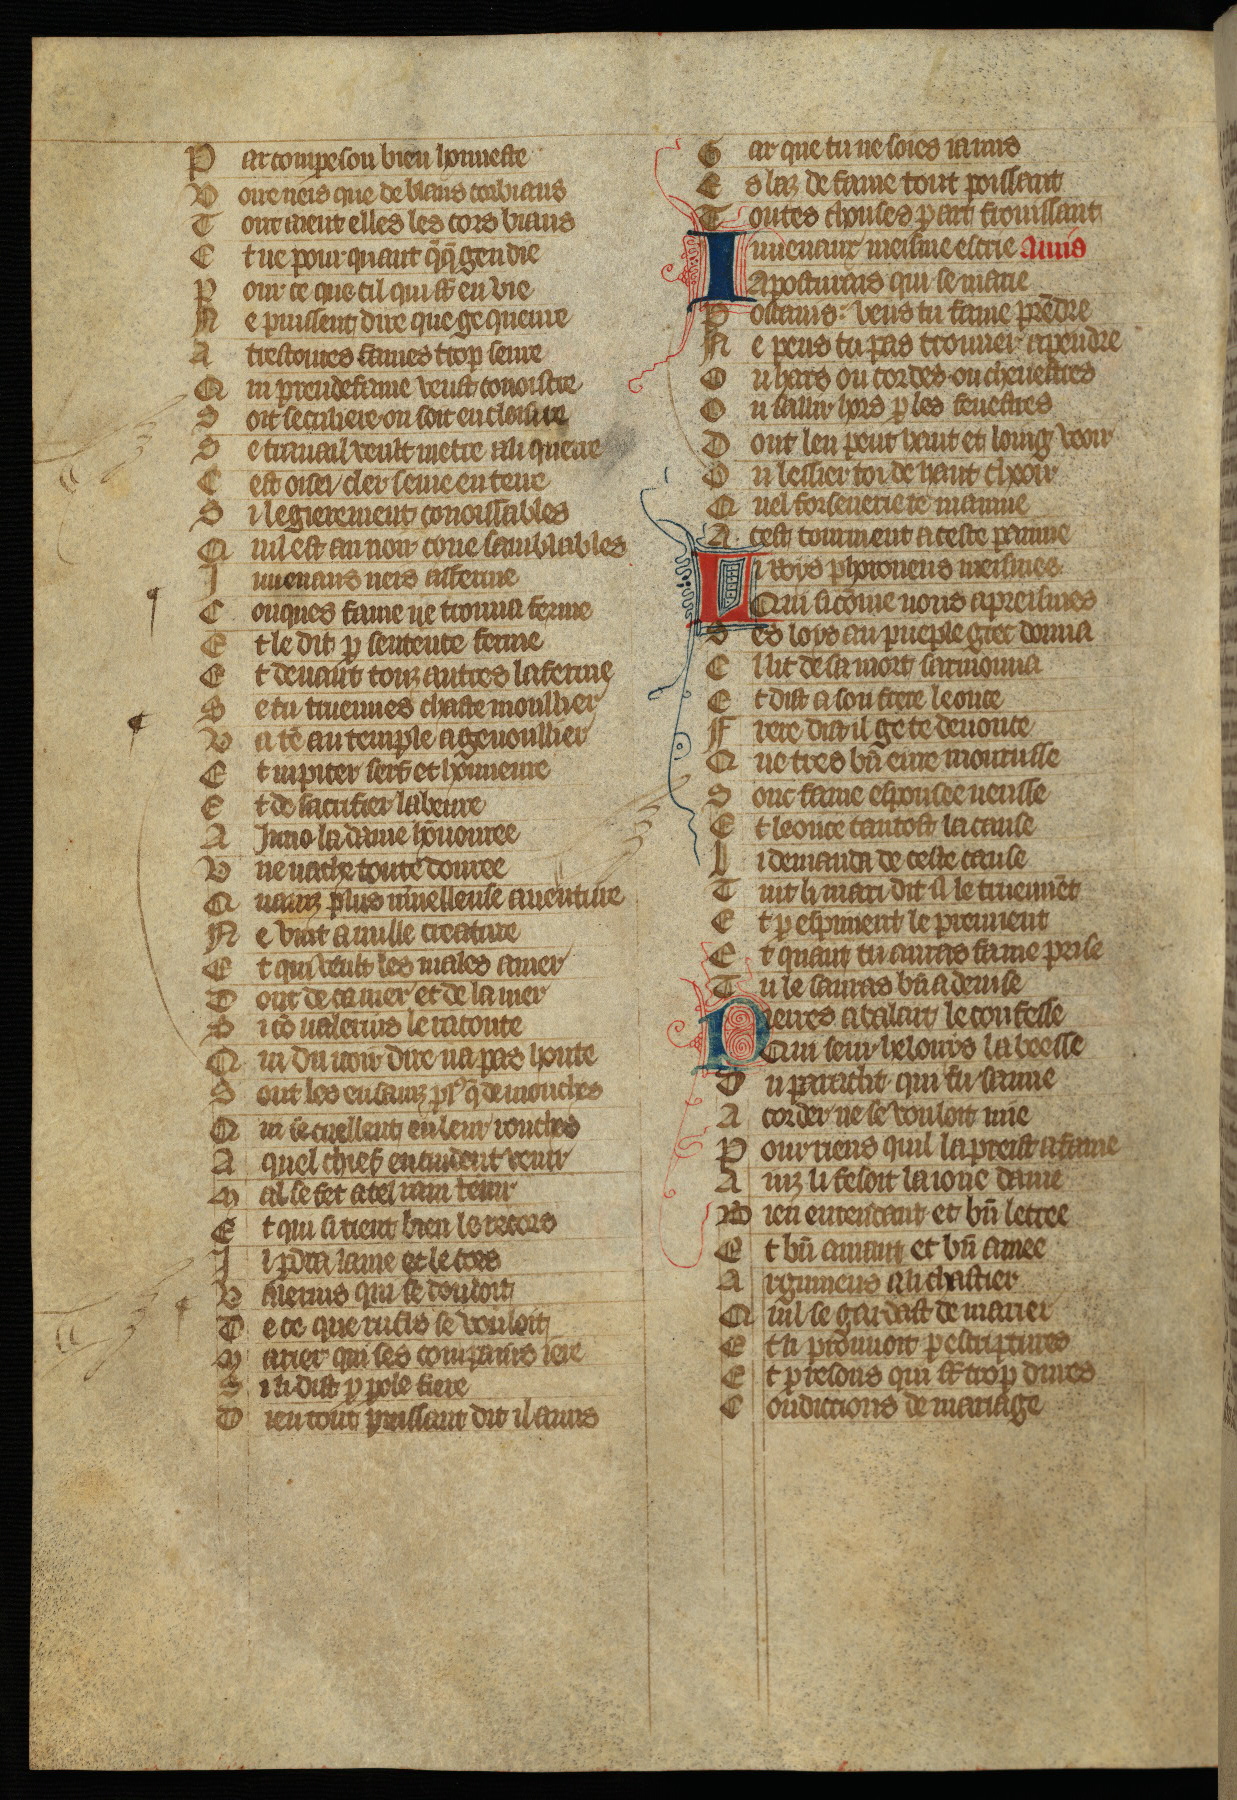 P ar compeson bien honneste
V oire neis que de blans corbiaus
T out aient elles les cors biaus
E t ne pour quant q̃ q̃ gen die
P our ce que cil qui st̃ en vie
N e puissent dire que ge queure
A trestoutes fames trop seure
Q ui preudefame veust conoistre
S oit seculiere ou soit en cloistre
S e trauail veult metre au querre
C est oisel cler seme en terre
S i legierement conoissables
Q uil est au noir cine samblables
J uuenaus neis afferme
C onques fame ne trouua ferme
E t le dit ꝑ sentente ferme
E t deuant touz autres laferme
S e tu truennes chaste moullier
V a tẽ au temple agenoullier
E t iupiter sers et honneure
E t de sacrifier labeure
A Juno la dame hounouree
V ne vache toute doree
Q uanz plus mueilleuse auenture
N e vint a nulle creature
E t qui veult les males amer
D ont de ca mer et de la mer
S i cõ valerius le raconte
Q ui du uoir dire na pas honte
S ont les ensanz plꝰ q̃ de mouches
Q ui se cuellent en leur rouches
A quel chief en cuident venir
M al se fet a tel rain tenir
E t qui si tient bien le recors
J l ꝑdra lame et le cors
V alerius qui se douloit
D e ce que rufus se vouloit
M arier qui ses compains iere
S i li dist ꝑ pole fiere
D ieu tout puissant dit il amis
G ar que tu ne soies ia mis
E s laz de fame tout poissant
T outes chouses ꝑ art froissant
I uuenaux meisme escrie Amis
A postumus qui se marie
P ostumus veus tu fame prẽdre
N e peus tu pas trouuer a pendre
O u hars ou cordes ou cheuestres
O u sallir hors ꝑ les fenestres
D ont len peut haut et loing veoir
O u lessier toi de haut cheoir
Q uel forsenerie te manne
A cest tourment a ceste panne
L i roys phoroneus meismes
Qui si cõme nous apreismes
S es loys au pueple grec donna
E l lit de sa mort sarmonna
E t dist a son frere leonce
F rere dist il ge te denonce
Q ue tres bñ eure mourusse
S onc fame espousee neusse
E t leonce tantost la cause
L i demanda de ceste cause
T uit li mari dit il le truennẽt
E t ꝑ espiment le prennent
E t quant tu auras fame prise
T u le sauras bñ a deuise
P ierres abalart le confesse
Qui seur helouys labeesse
D u paraclit qui fu samie
A corder ne se vouloit mie
P our riens quil la preist a fame
A inz li fesoit la ione dame
B ien entendant et bñ letree
E t bñ amant et bñ amee
A rgumens a li chastier
Q uil se gardast de marier
E t li prouuoit ꝑ escriptures
E t ꝑ resons qui st̃ trop dures
C ondictions de mariage